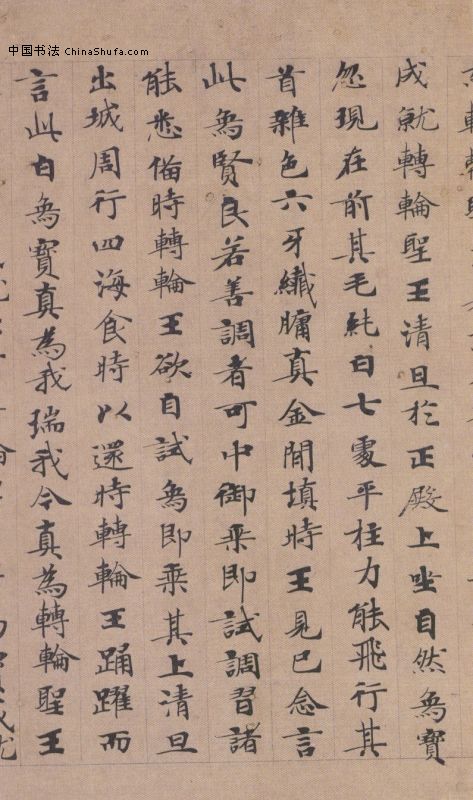 中国书法 ChinaShufa.com
成就轉輪聖王清旦於正殿上坐自然象寶
忽現在前其毛純白七處平柱力能飛行其
首雜色六牙纖𦟛真金間填時王見已念言
此象賢良若善調者可中御乘即試調習諸
能悉備時轉輪王欲自試象即乘其上清旦
出城周行四海食時以還時轉輪王踊躍而
言此白象寶真為我瑞我今真為轉輪聖王